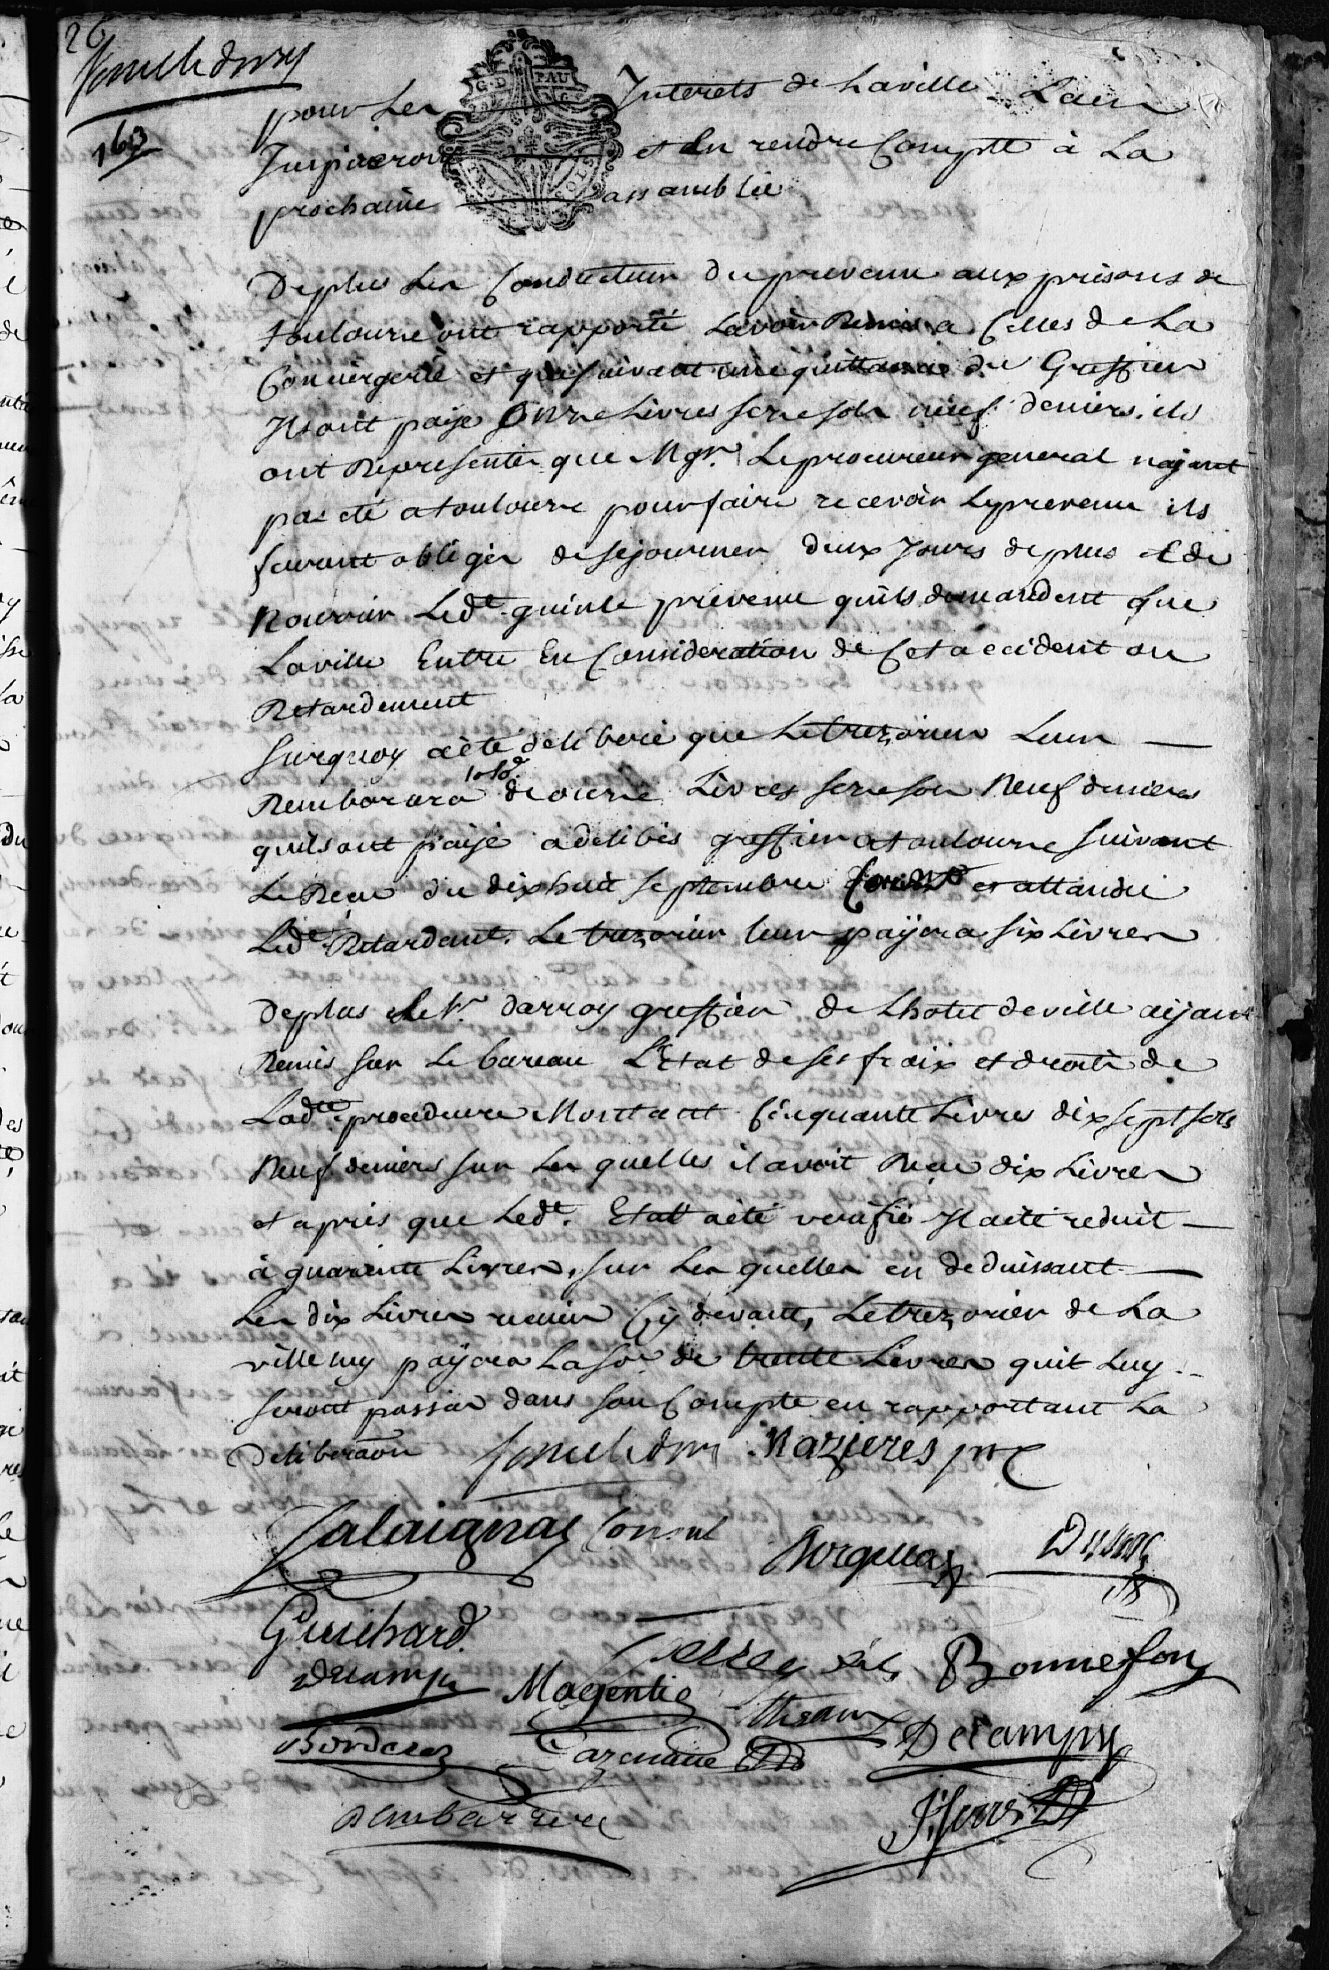 26
163
G. D. PAU
pour Les Interets de Laville Leur
Inspireront et En rendre Compte à La
prochaine assamblée
Deplus Les Conducteurs du prevenu aux prisons de
toulouse ont rapporté Lavoir Remis a Celles de La
Conciergerie et que suivant une quittance du Greffier
Ils ont payé Onze Livres seze sols neuf deniers. ils
ont Representé que Mgr. Le procureur general n'ayant
pas eté a toulouse pour faire recevoir Le prevenu ils
furent obligés de sejourner deux Jours de plus et de
Nourrir Ledt. prevenu quils demandent que
Laville Entre En Consideration de Cet accident ou
Retardement
Surquoy a eté deliberé que Le trezorier Leur
Remborcera de onze Livres seze sols Neuf deniers
quils ont payé a delibes greffier a toulouse suivant
Le Reçu du dixhuit septembre et attandu
Ledt. Retardemt. Le trezorier leur payera six Livres
Deplus Le Sr. darroy greffier de Lhotel de ville ayant
Remis sur Le bureau L'Etat de ses fraix et droits de
Ladte. procedure Montant Cinquante Livres dix sept sols
Neuf deniers sur Les quelles il avoit Reçu dix Livres
et apres que Ledt. Etat a eté verifié Il a eté reduit
à quarante Livres, sur Les quelles en deduisant
Les dix Livres reçues Cy devant, Le trezorier de La
ville luy payera La so͞e de trente Livres quil Luy
seront passés dans son Compte en rapportant La
Deliberaōn Mazieres
Salaignac Consul
Guichard
Descamps Magentie Bonnefon
Bordeses Cazenave Descamps
Dembarrere